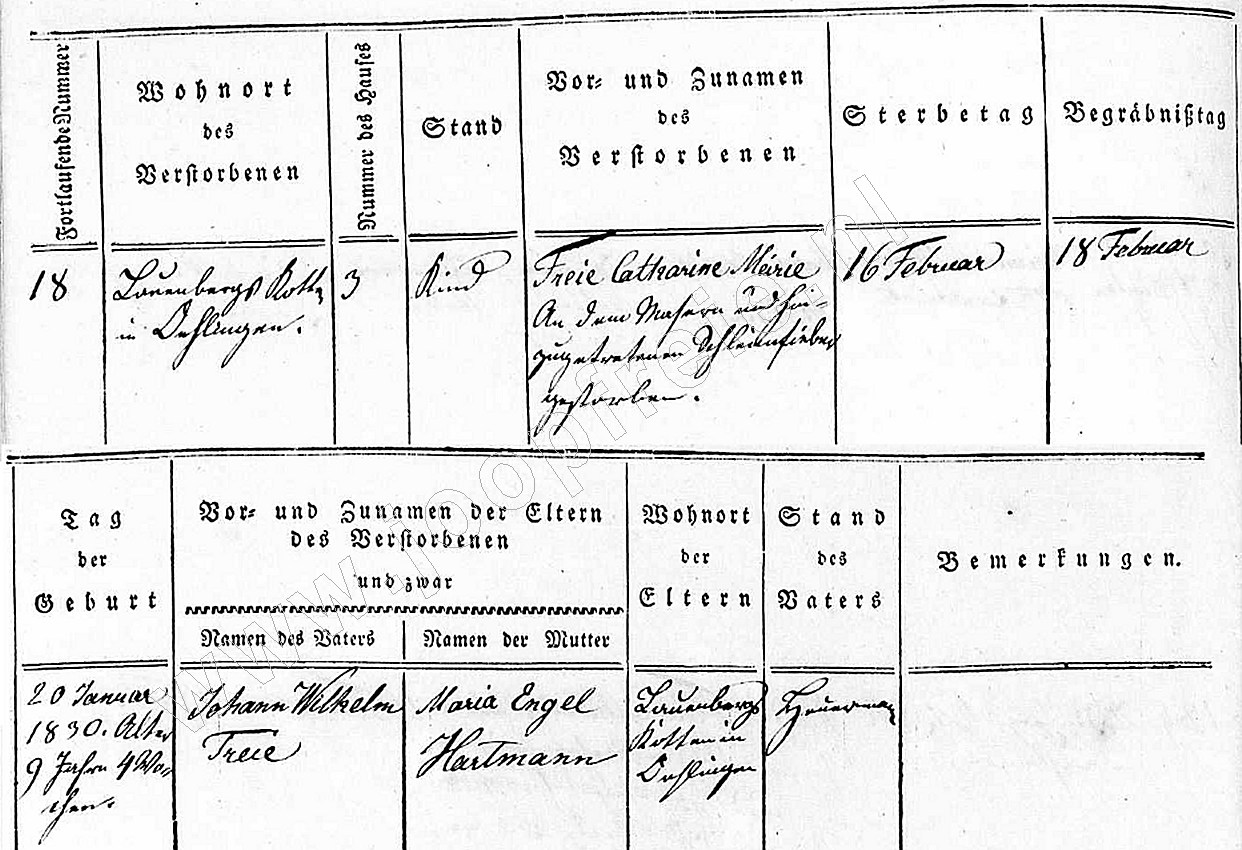 Fortlaufende Nummer
Wohnort
des
Verstorbenen
Nummer des Hauses
Stand
Vor- und Zunamen
des
Verstorbenen
Sterbetag
Begräbnißtag
18
Lauenbergs Kotten
in Oehlingen.
3
Kind
Freie Catharine Marie
An dem Masern und hin-
zugetretenen Schleimfieber
gestorben.
16 Februar
18 Februar
Tag
der
Geburt
Vor- und Zunamen der Eltern
des Verstorbenen
und zwar
Namen des Vaters
Namen der Mutter
Wohnort
der
Eltern
Stand
des
Vaters
Bemerkungen.
20 Januar
1830. Alter
9 Jahre 4 Wo-
chen.
Johann Wilhelm
Freie
Maria Engel
Hartmann
Lauenbergs
Kotten in
Oehlingen
Heuermann
www.joopfreie.nl